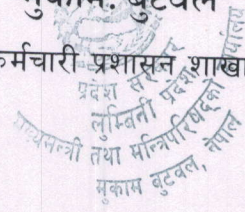 मुकाम: बुटवल
कर्मचारी प्रशासन शाखा
प्रदेश सरकार
लुम्बिनी प्रदेश
मुख्यमन्त्री तथा मन्त्रिपरिषद्को कार्यालय
मुकाम बुटवल, नेपाल